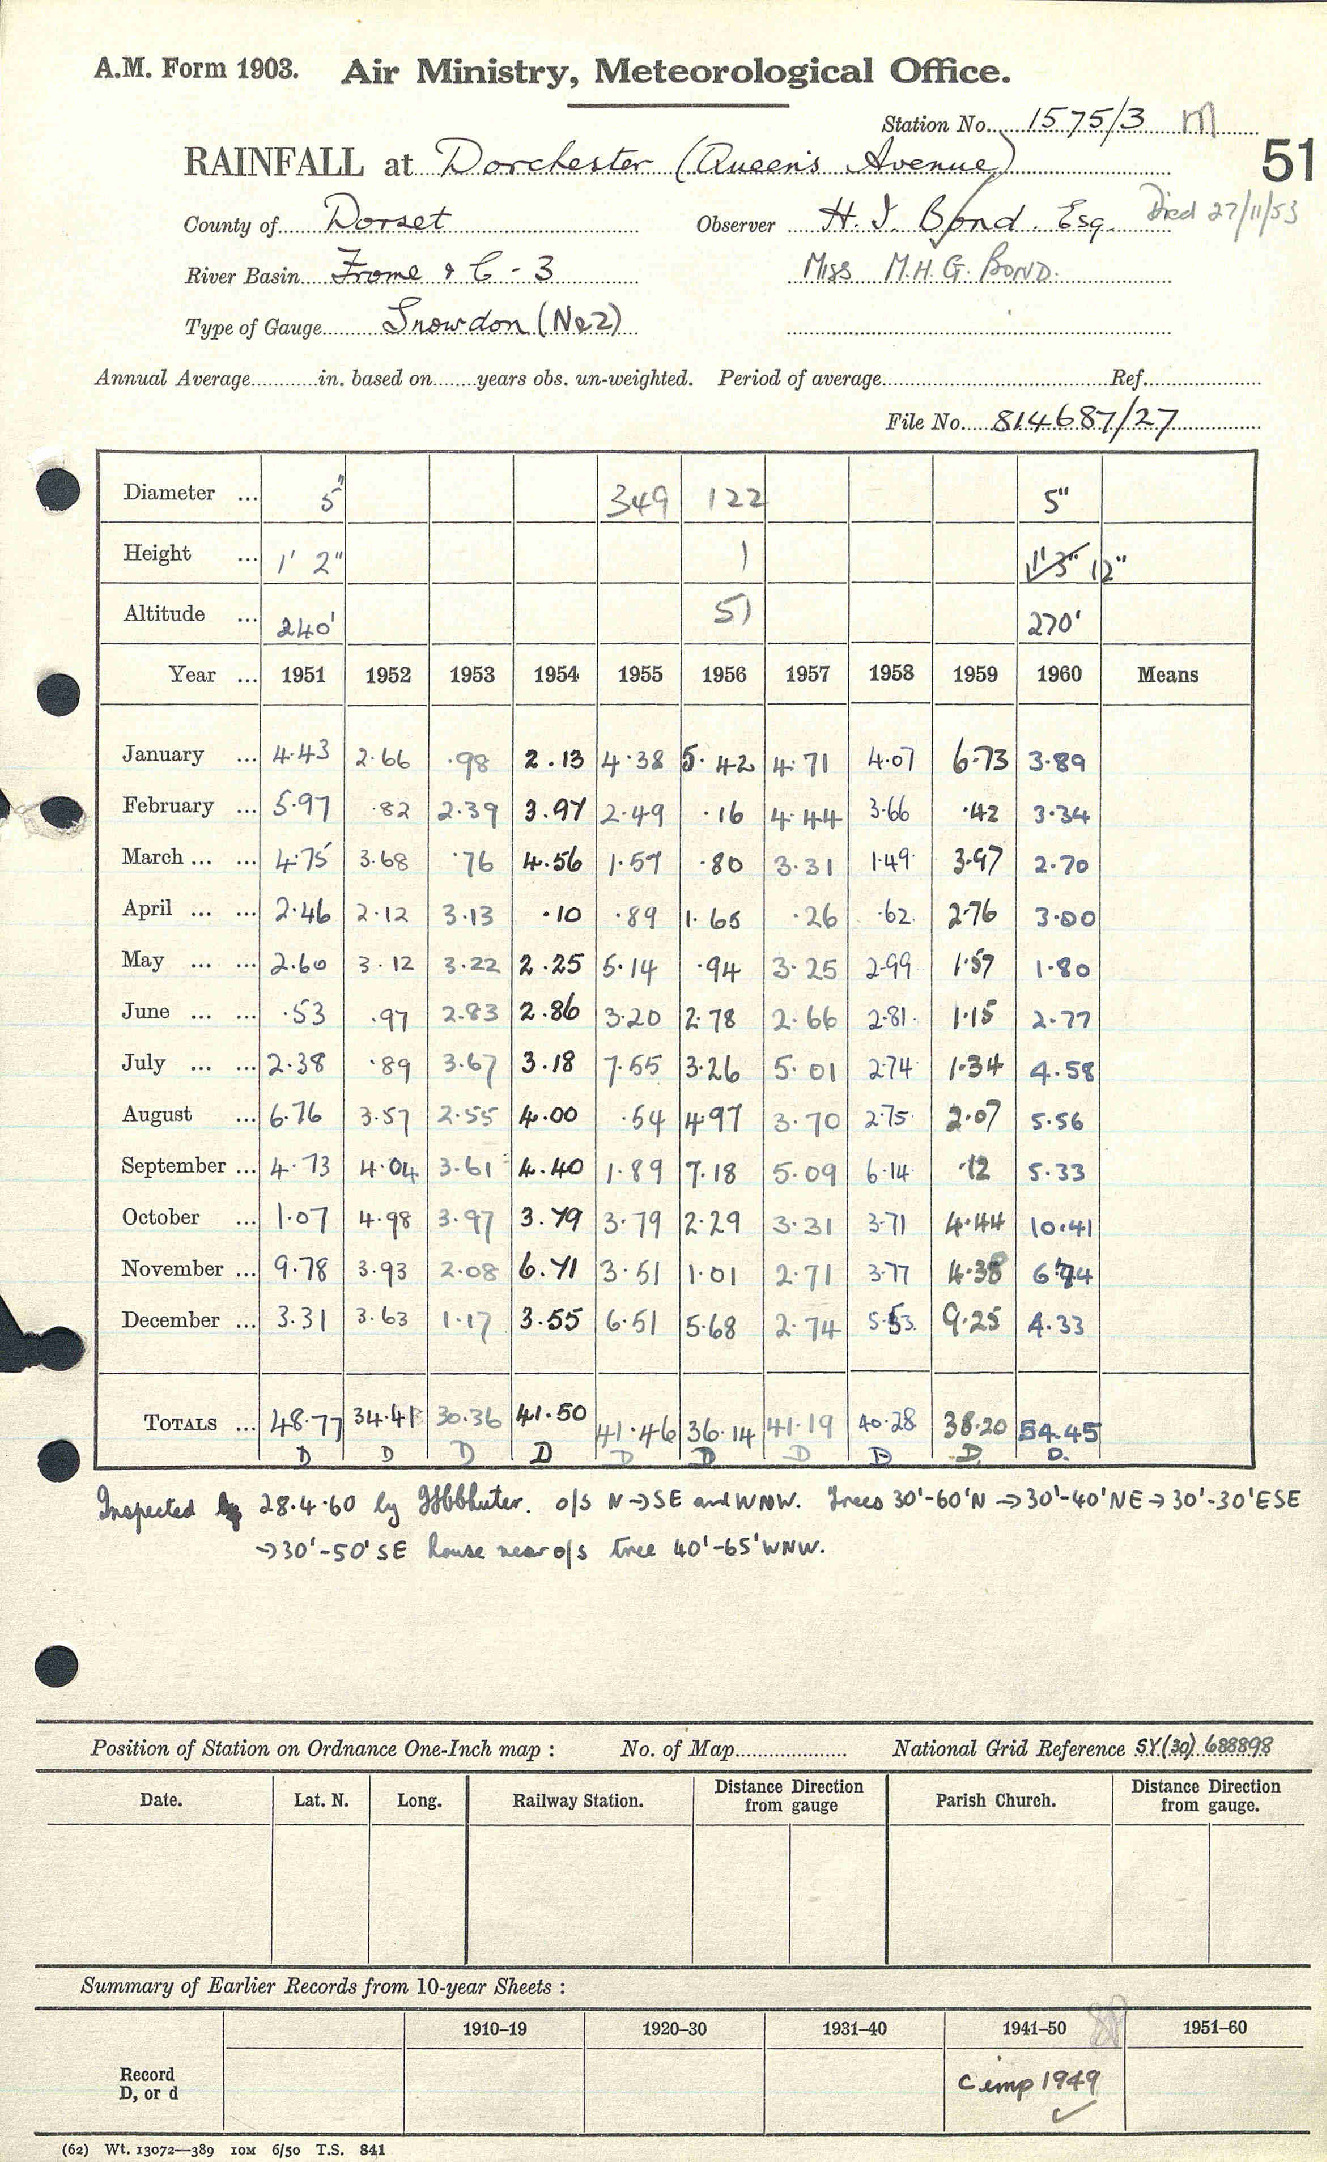 A.M. Form 1903. Air Ministry, Meteorological Office.
Station No. 1575/3 m
51
RAINFALL at Dorchester (Queen's Avenue)
County of Dorset Observer H. J. Bond. Esq. Died 27/11/53
River Basin Frome & C - 3 Miss M.H.G. BOND.
Type of Gauge Snowdon (No 2)
Annual Average in. based on years obs. un-weighted. Period of average Ref.
File No. 814687/27
Diameter ... 5" 349 122 5"
Height ... 1' 2" 1 1'3" 12"
Altitude ... 240' 51 270'
Year ... 1951 1952 1953 1954 1955 1956 1957 1958 1959 1960 Means
January ... 4.43 2.66 .98 2.13 4.38 5.42 4.71 4.07 6.73 3.89
February ... 5.97 .82 2.39 3.97 2.49 .16 4.44 3.66 .42 3.34
March ... ... 4.75 3.68 .76 4.56 1.57 .80 3.31 1.49 3.97 2.70
April ... ... 2.46 2.12 3.13 .10 .89 1.65 .26 .62 2.76 3.00
May ... ... 2.60 3.12 3.22 2.25 5.14 .94 3.25 2.99 1.57 1.80
June ... ... .53 .97 2.83 2.86 3.20 2.78 2.66 2.81 1.15 2.77
July ... ... 2.38 .89 3.67 3.18 7.55 3.26 5.01 2.74 1.34 4.58
August ... 6.76 3.57 2.55 4.00 .54 4.97 3.70 2.75 2.07 5.56
September ... 4.73 4.04 3.61 4.40 1.89 7.18 5.09 6.14 .12 5.33
October ... 1.07 4.98 3.97 3.79 3.79 2.29 3.31 3.71 4.44 10.41
November ... 9.78 3.93 2.08 6.71 3.51 1.01 2.71 3.77 4.38 6.74
December ... 3.31 3.63 1.17 3.55 6.51 5.68 2.74 5.53 9.25 4.33
TOTALS ... 48.77 34.41 30.36 41.50 41.46 36.14 41.19 40.28 38.20 54.45
D D D D D D D D D D.
Inspected by 28.4.60 by o/s N→SE and WNW. Trees 30'-60'N →30'-40'NE→30'-30'ESE
→30'-50'SE house near o/s tree 40'-65'WNW.
Position of Station on Ordnance One-Inch map : No. of Map National Grid Reference SY(30) 688898
Date. Lat. N. Long. Railway Station. Distance Direction from gauge Parish Church. Distance Direction from gauge.
Summary of Earlier Records from 10-year Sheets :
1910–19 1920–30 1931–40 1941–50 1951–60
Record
D, or d
C imp 1949
(62) Wt. 13072—389 10M 6/50 T.S. 841